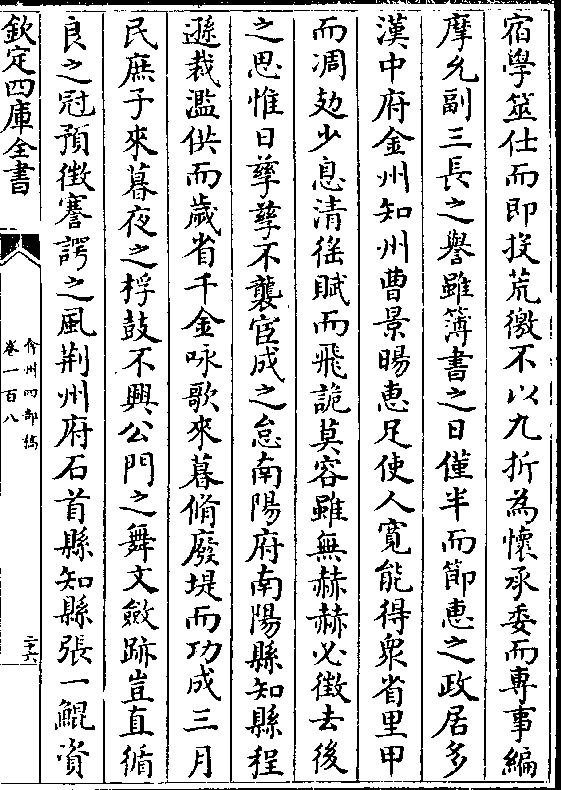 宿學筮仕而即投荒徼不以九折為懷承委而專事編
摩允副三長之譽雖簿書之日僅半而節惠之政居多
漢中府金州知州曹景暘惠足使人寛能得衆省里甲
而凋劾少息清徭賦而飛詭莫容雖無赫赫必徵去後
之思惟日孳孳不襲宦成之怠南陽府南陽縣知縣程
遜裁濫供而歲省千金咏歌來暮脩廢堤而功成三月
民庶子來暮夜之桴鼓不興公門之舞文斂跡豈直循
良之冠預徴謇諤之風荆州府石首縣知縣張一鯤資
欽定四庫全書
弇州四部稿
卷一百八
二十六